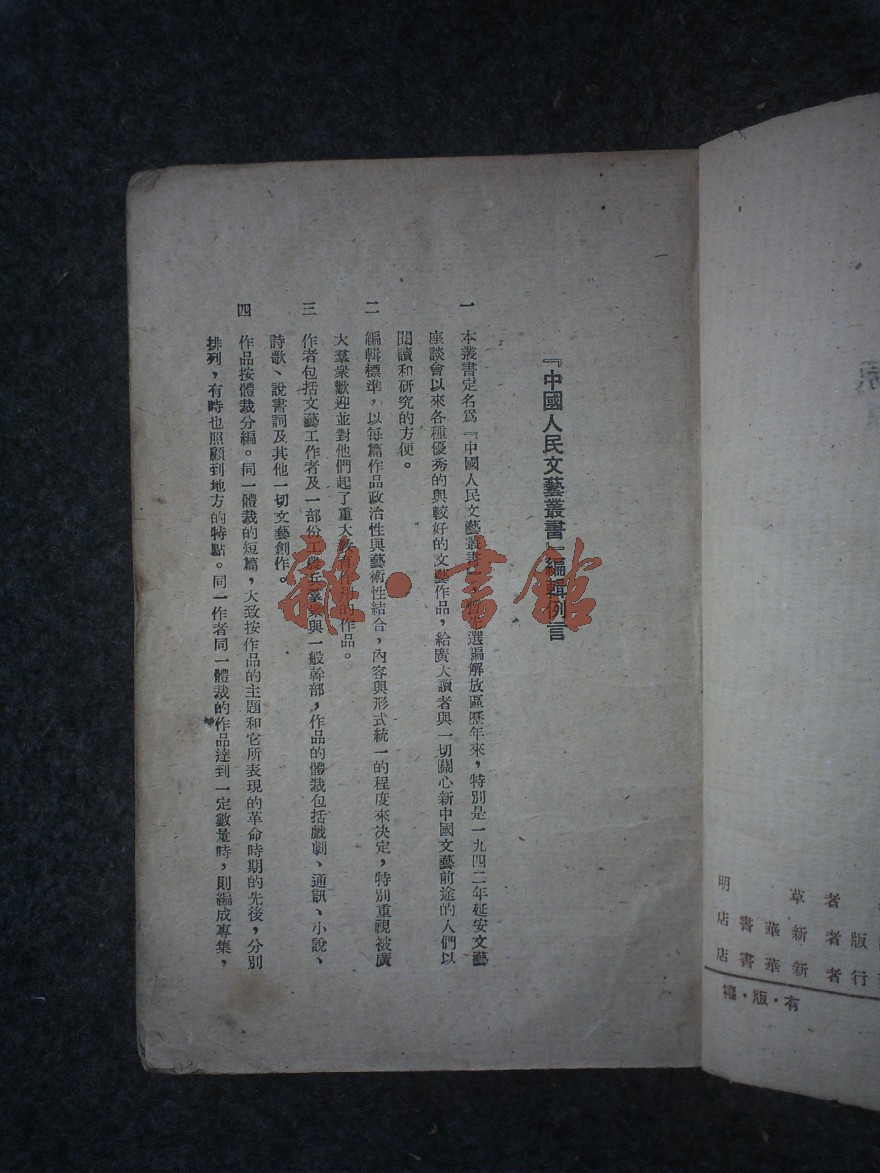 『中國人民文藝叢書』編輯例言
一 本叢書定名爲『中國人民文藝叢書』,選編解放區歷年來,特別是一九四二年延安文藝
座談會以來各種優秀的與較好的文藝作品,給廣大讀者與一切關心新中國文藝前途的人們以
閱讀和研究的方便。
二 編輯標準,以每篇作品政治性與藝術性結合,內容與形式統一的程度來決定,特別重視被廣
大羣衆歡迎並對他們起了重大教育作用的作品。
三 作者包括文藝工作者及一部份工農兵羣衆與一般幹部,作品的體裁包括戲劇、通訊、小說、
詩歌、說書詞及其他一切文藝創作。
四 作品按體裁分編。同一體裁的短篇,大致按作品的主題和它所表現的革命時期的先後,分別
排列,有時也照顧到地方的特點。同一作者同一體裁的作品達到一定數量時,則編成專集,
雜·書館
者 草明
版者 新華書店
行者 新華書店
有·版·權